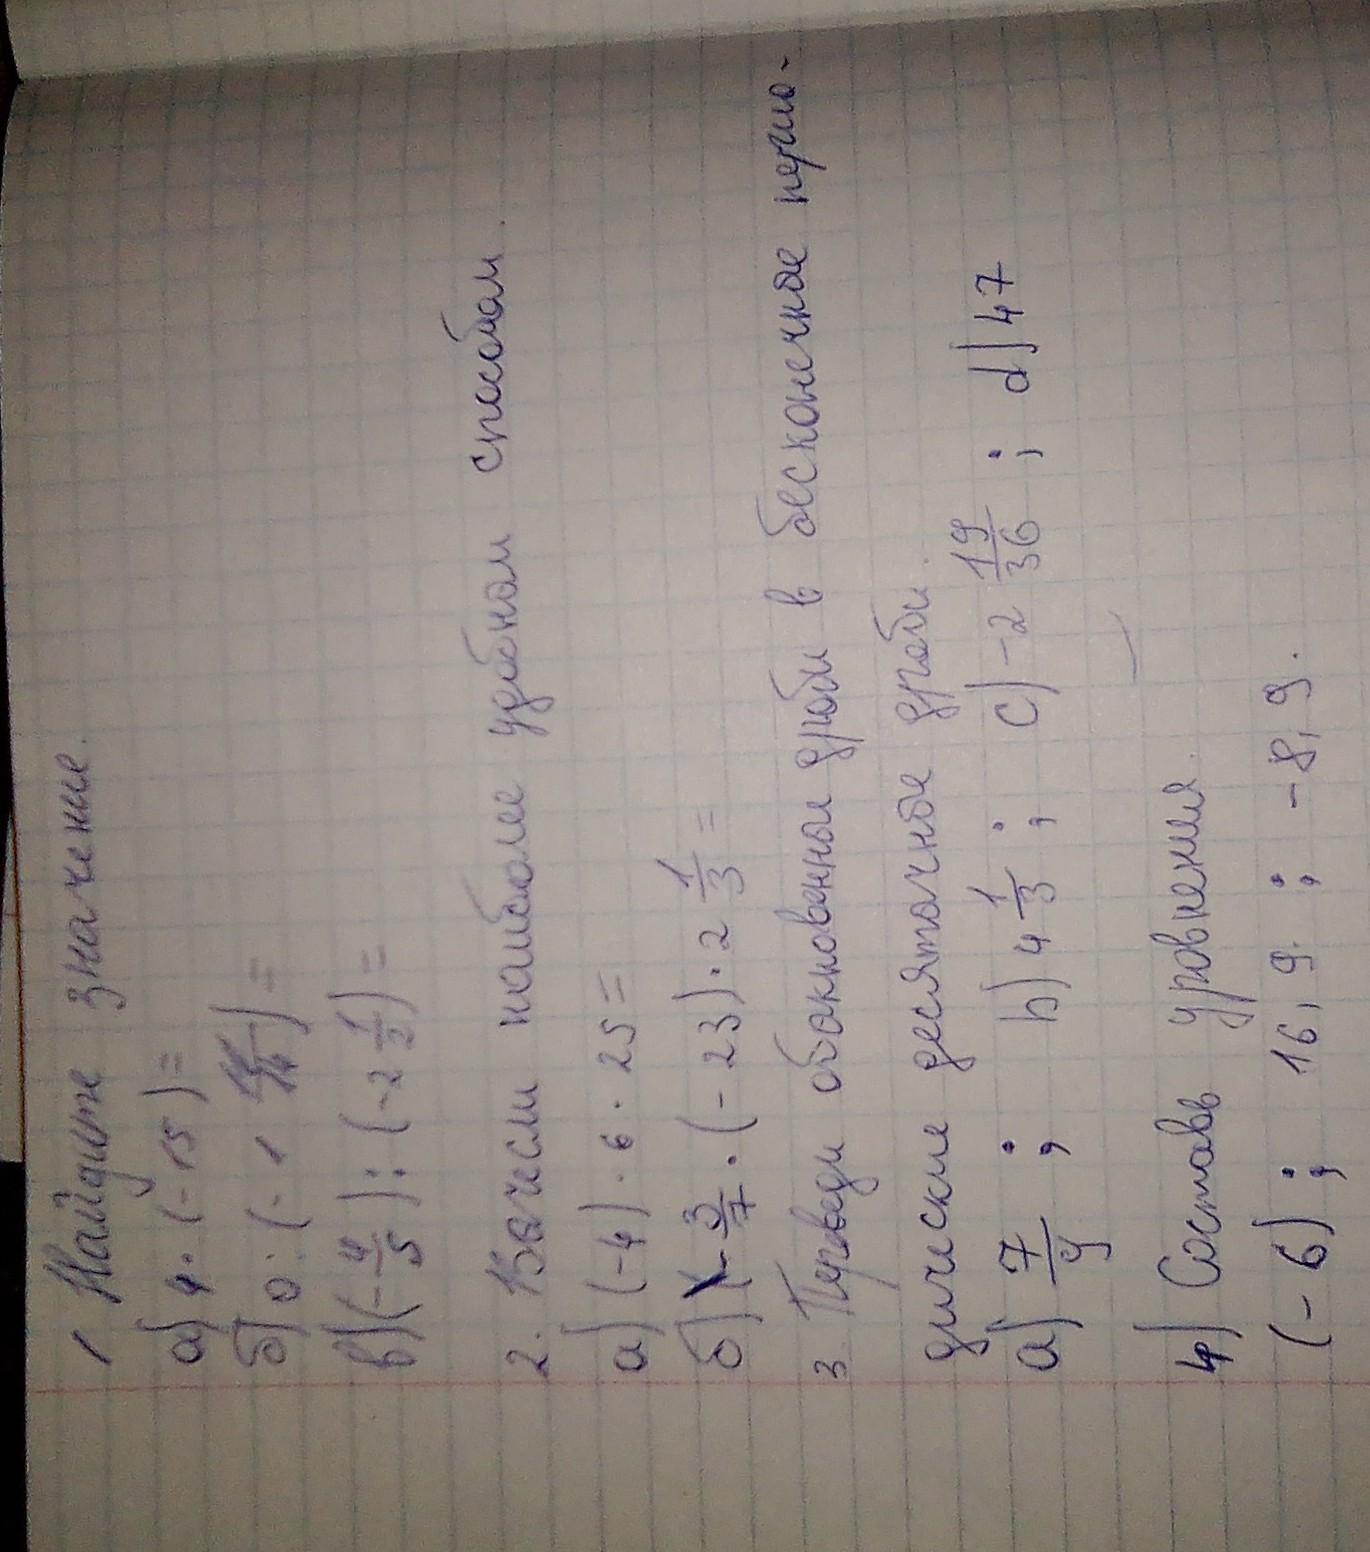 1 Найдите значение.
а) 4 · (-15) =
б) 0 : (- 1 ) =
в) (- 4/5) : (-2 1/2) =
2. Вычисли наиболее удобном способом.
а) (-4) · 6 · 25 =
б) (- 3/7 · (- 23) · 2 1/3 =
3 Переведи обыкновенные дроби в бесконечное перио-
дические десятичное дроби.
а) 7/9 ; b) 4 1/3 ; c) -2 19/36 ; d) 47
4) Составь уровнения.
(- 6) ; 16,9. ; -8,9.